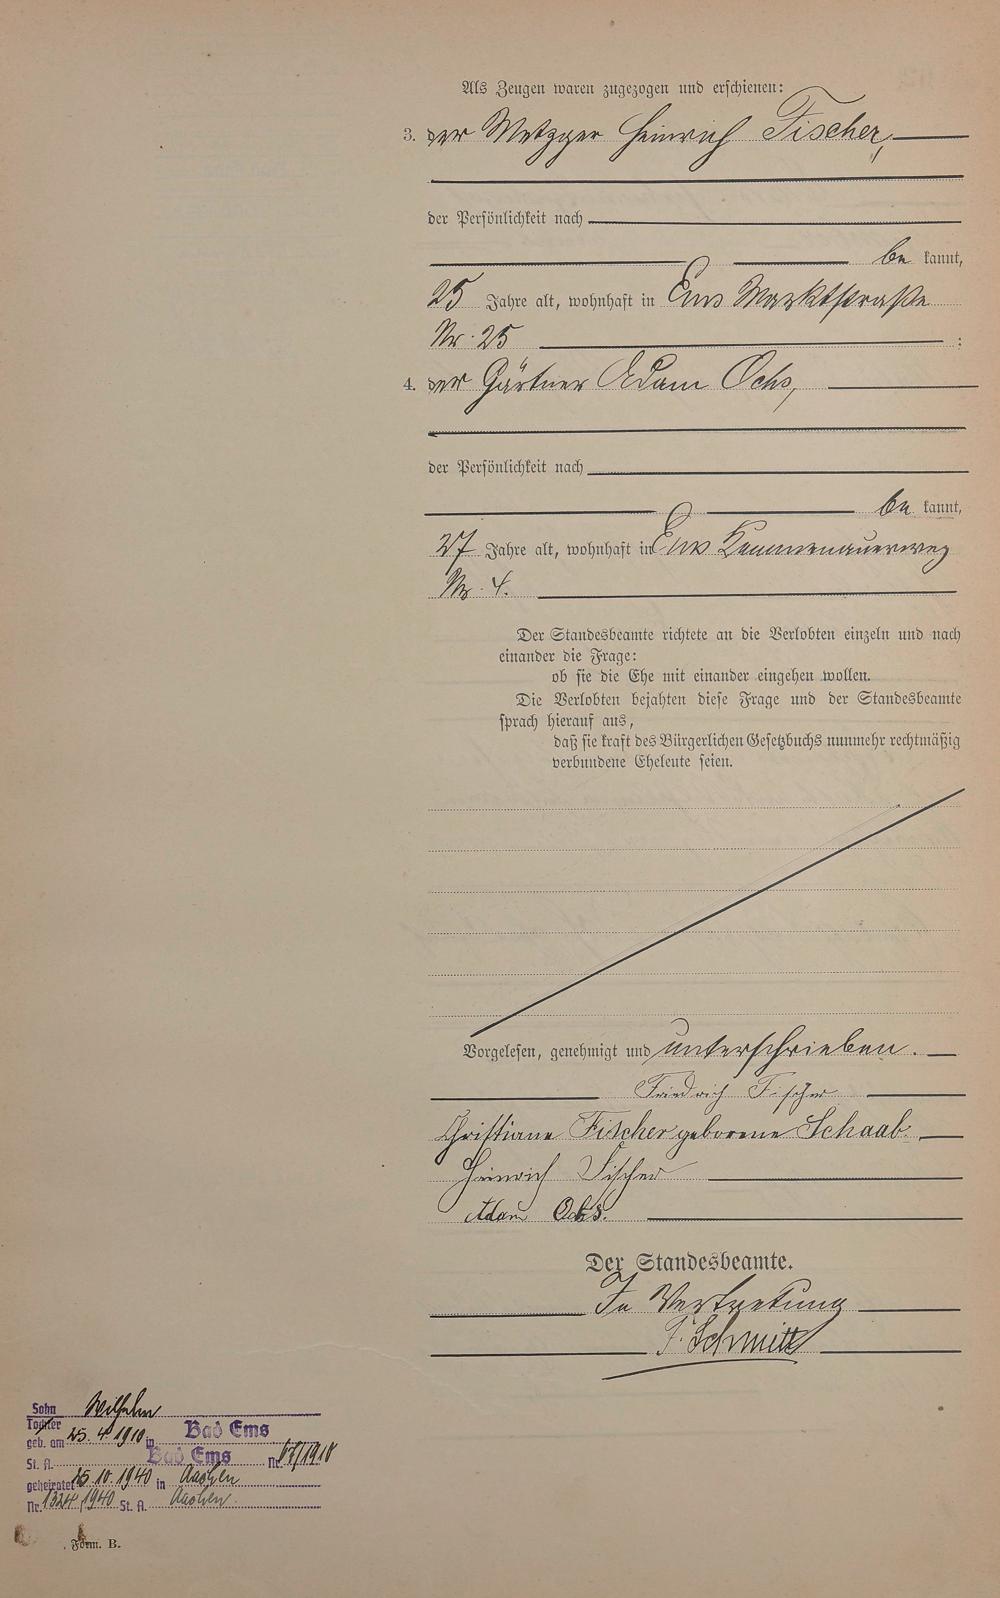 Als Zeugen waren zugezogen und erschienen:
3. der Metzger Heinrich Fischer,
der Persönlichkeit nach
be kannt,
25 Jahre alt, wohnhaft in Ems Marktstraße
Nr. 25 ;
4. der Gärtner Adam Ochs,
der Persönlichkeit nach
be kannt,
27 Jahre alt, wohnhaft in Ems Kemmenauerweg
Nr. 4.
Der Standesbeamte richtete an die Verlobten einzeln und nach
einander die Frage:
ob sie die Ehe mit einander eingehen wollen.
Die Verlobten bejahten diese Frage und der Standesbeamte
sprach hierauf aus,
daß sie kraft des Bürgerlichen Gesetzbuchs nunmehr rechtmäßig
verbundene Eheleute seien.
Vorgelesen, genehmigt und unterschrieben.
Friedrich Fischer
Christiane Fischer geborene Schaab.
Heinrich Fischer
Adam Ochs.
Der Standesbeamte.
In Vertretung
F. Schmitt
Sohn Wilhelm
Tochter
geb. am 25. 4. 1910 in Bad Ems
St. A. Bad Ems Nr. 67/1910
geheiratet 25.10.1940 in Aachen
Nr. 1324/1940 St. A. Aachen
Form. B.